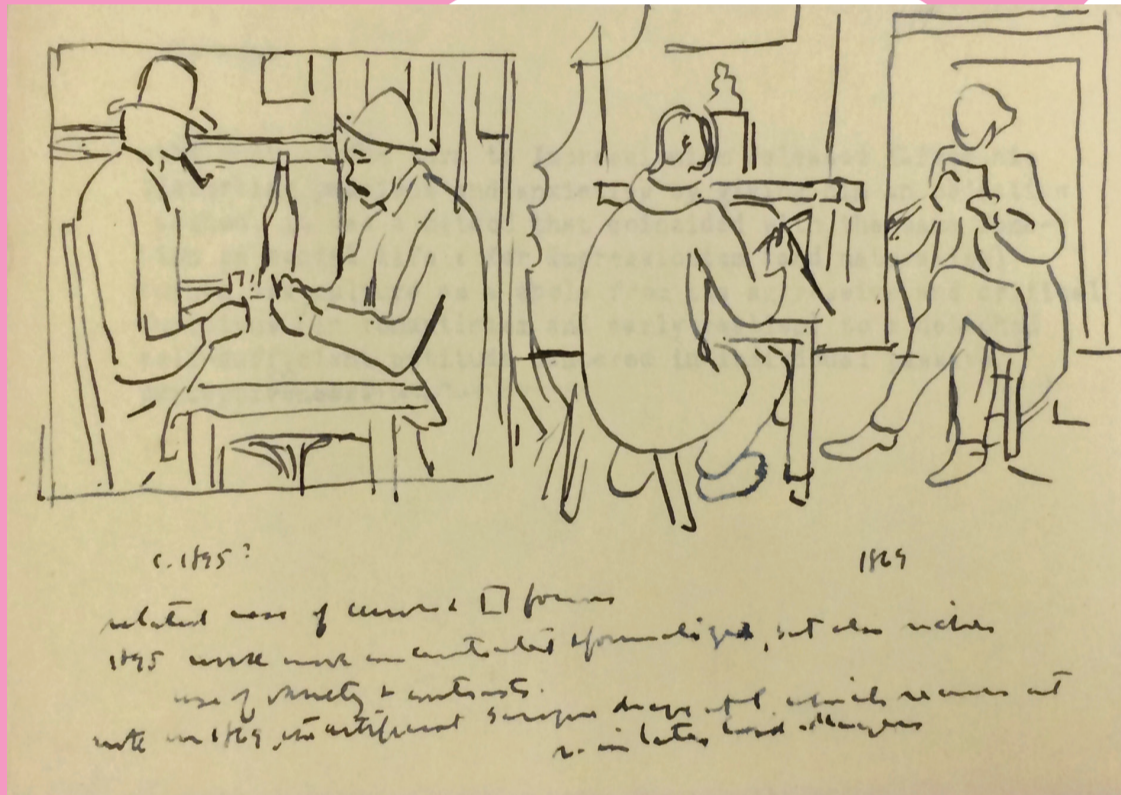 c. 1895?
1869
related uses of curve & forms
1895 work more concentrated & formalized, but also richer
use of variety & contrasts.
note in 1869, the artificial drape at l. which recurs at
r. in later card-players